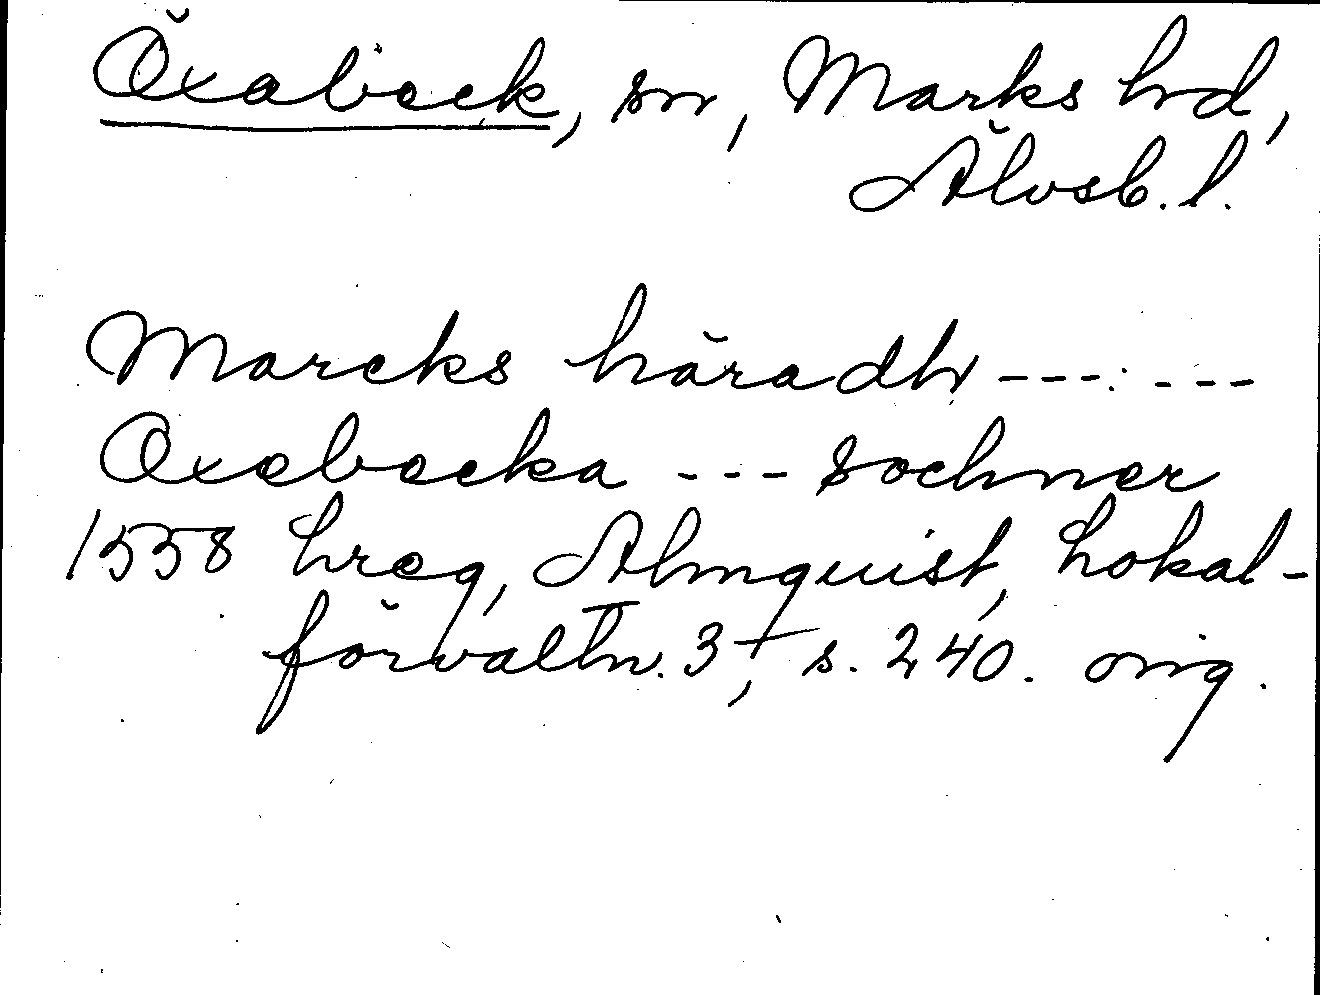 Öxabäck, sn, Marks hd,
Älvsb. l.
Marcks häradh --- ---
Oxebecka --- sochner
1558 hreg, Almquist, Lokal-
förvaltn. 3, s. 240. orig.